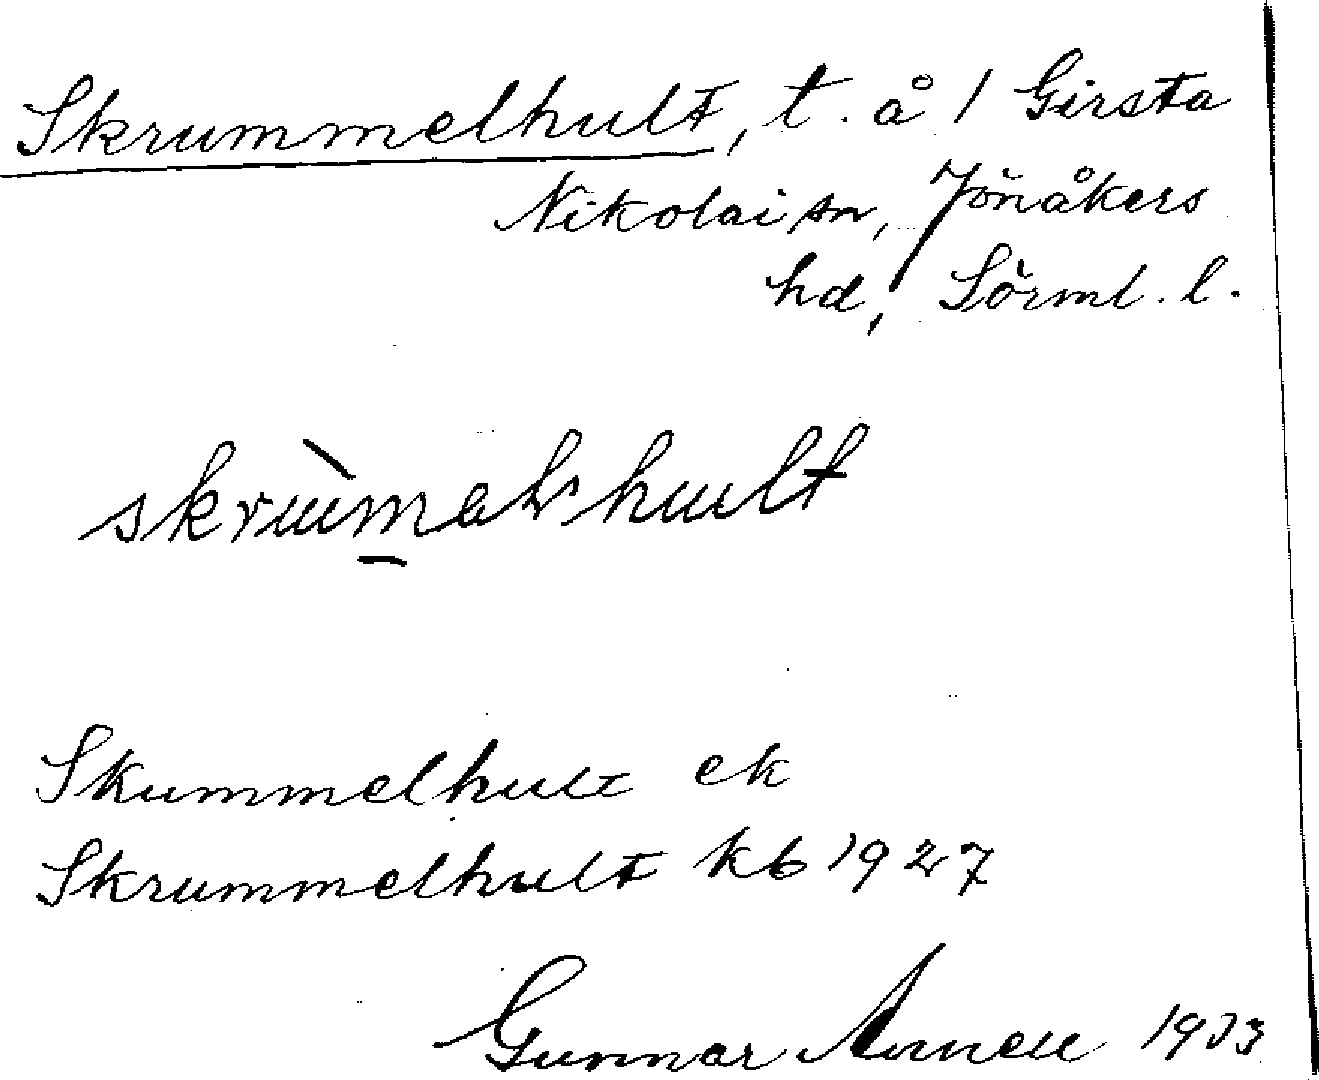 Skrummelhult, t. å 1 Girsta
Nikolai sn, Jönåkers
hd, Sörml. l.
Skummelhult ek
Skrummelhult kb 1927
Gunnar Arnell 1933